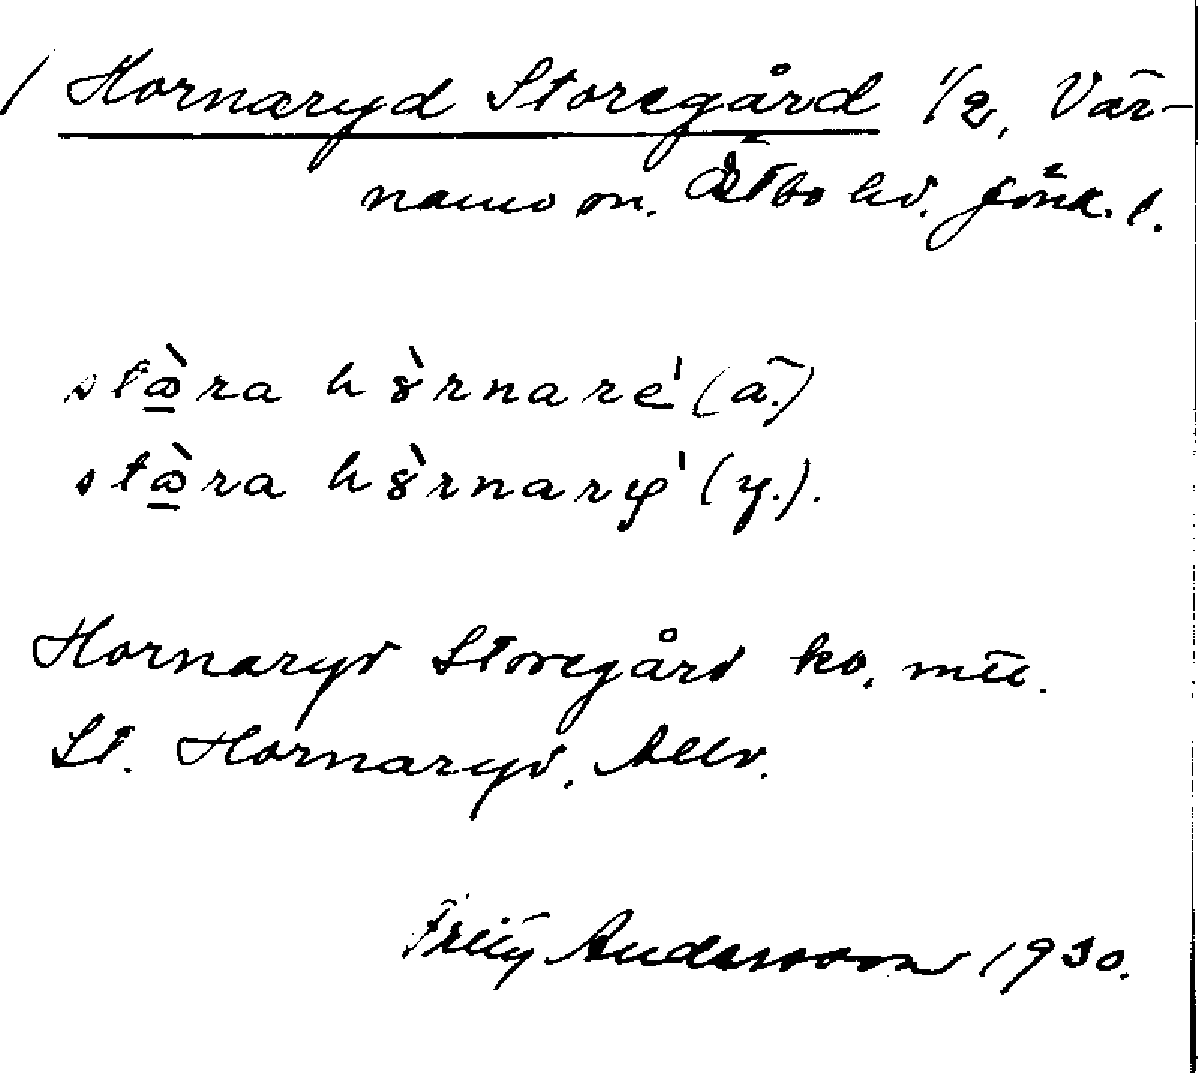 / Hornaryd Storegård 1/2, Vär-
namo sn. Östbo hd. Jönk. l.
stɷ̀ra hɣ̀rnare' (ä.)
stɷ̀ra hɣ̀rnary' (y.).
Hornaryd Storegård ko,
St. Hornaryd,
Andersson 1930.